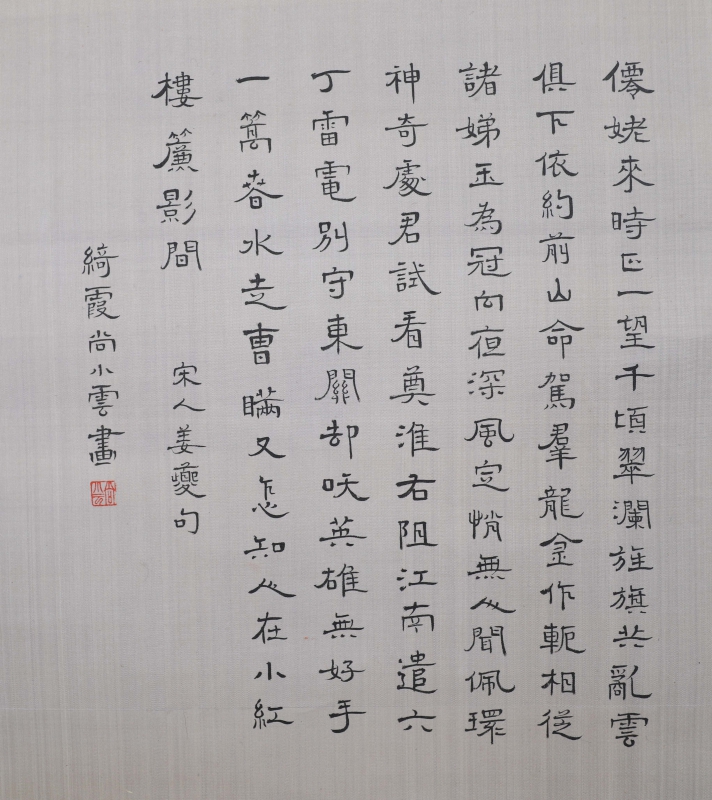 僊姥來時正一望千頃翠瀾旌旗共亂雲
俱下依約前山命駕羣龍金作軛相從
諸娣玉為冠向夜深風定悄無人聞佩環
神奇處君試看奠淮右阻江南遣六
丁雷電別守東關却咲英雄無好手
一篙春水走曹瞞又怎知人在小紅
樓簾影間 宋人姜夔句
綺霞尚小雲畫